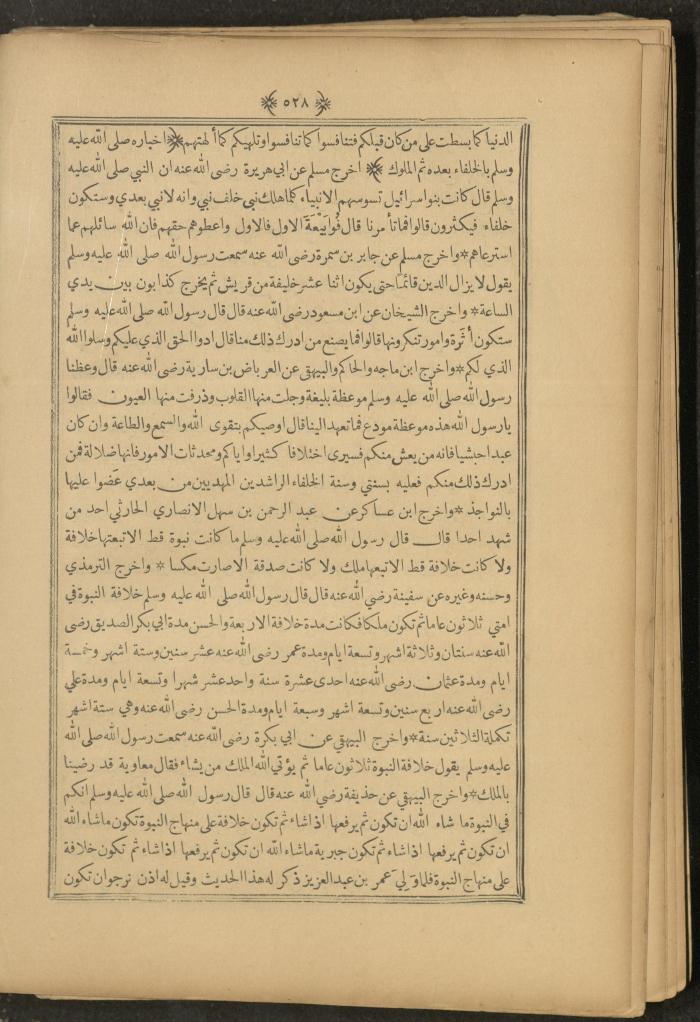 ﴿ ٥٢٨ ﴾
الدنيا كما بسطت على من كان قبلكم فتنافسوا كما تنافسوا وتلهيكم كما ألهتهم ﴿ اخباره صلى الله عليه
وسلم بالخلفاء بعده ثم الملوك ﴾ اخرج مسلم عن ابي هريرة رضي الله عنه ان النبي صلى الله عليه
وسلم قال كانت بنو اسرائيل تسوسهم الانبياء كلما هلك نبي خلف نبي وانه لا نبي بعدي وستكون
خلفاء فيكثرون قالوا فما تأمرنا قال فُوا بَيْعَةَ الاول فالاول واعطوهم حقهم فان الله سائلهم عما
استرعاهم * واخرج مسلم عن جابر بن سمرة رضي الله عنه سمعت رسول الله صلى الله عليه وسلم
يقول لا يزال الدين قائما حتى يكون اثنا عشر خليفة من قريش ثم يخرج كذابون بين يدي
الساعة * واخرج الشيخان عن ابن مسعود رضي الله عنه قال قال رسول الله صلى الله عليه وسلم
ستكون أَثَرة وامور تنكرونها قالوا فما يصنع من ادرك ذلك منا قال ادوا الحق الذي عليكم وسلوا الله
الذي لكم * واخرج ابن ماجه والحاكم والبيهقي عن العرباض بن سارية رضي الله عنه قال وعظنا
رسول الله صلى الله عليه وسلم موعظة بليغة وجلت منها القلوب وذرفت منها العيون فقالوا
يا رسول الله هذه موعظة مودع فما تعهد الينا قال اوصيكم بتقوى الله والسمع والطاعة وان كان
عبدا حبشيا فانه من يعش منكم فسيرى اختلافا كثيرا واياكم ومحدثات الامور فانها ضلالة فمن
ادرك ذلك منكم فعليه بسنتي وسنة الخلفاء الراشدين المهديين من بعدي عَضوا عليها
بالنواجذ * واخرج ابن عساكر عن عبد الرحمن بن سهل الانصاري الحارثي احد من
شهد احدا قال قال رسول الله صلى الله عليه وسلم ما كانت نبوة قط الا تبعتها خلافة
ولا كانت خلافة قط الا تبعها ملك ولا كانت صدقة الا صارت مكسا * واخرج الترمذي
وحسنه وغيره عن سفينة رضي الله عنه قال قال رسول الله صلى الله عليه وسلم خلافة النبوة في
امتي ثلاثون عاما ثم تكون ملكا فكانت مدة خلافة الاربعة والحسن مدة ابي بكر الصديق رضي
الله عنه سنتان وثلاثة اشهر وتسعة ايام ومدة عمر رضي الله عنه عشر سنين وستة اشهر وخمسة
ايام ومدة عثمان رضي الله عنه احدى عشرة سنة واحد عشر شهرا وتسعة ايام ومدة علي
رضي الله عنه اربع سنين وتسعة اشهر وسبعة ايام ومدة الحسن رضي الله عنه وهي ستة اشهر
تكملة الثلاثين سنة * واخرج البيهقي عن ابي بكرة رضي الله عنه سمعت رسول الله صلى الله
عليه وسلم يقول خلافة النبوة ثلاثون عاما ثم يؤتي الله الملك من يشاء فقال معاوية قد رضينا
بالملك * واخرج البيهقي عن حذيفة رضي الله عنه قال قال رسول الله صلى الله عليه وسلم انكم
في النبوة ما شاء الله ان تكون ثم يرفعها اذا شاء ثم تكون خلافة على منهاج النبوة تكون ما شاء الله
ان تكون ثم يرفعها اذا شاء ثم تكون جبرية ما شاء الله ان تكون ثم يرفعها اذا شاء ثم تكون خلافة
على منهاج النبوة فلما وَلِيَ عمر بن عبد العزيز ذكر له هذا الحديث وقيل له اذن نرجو ان تكون